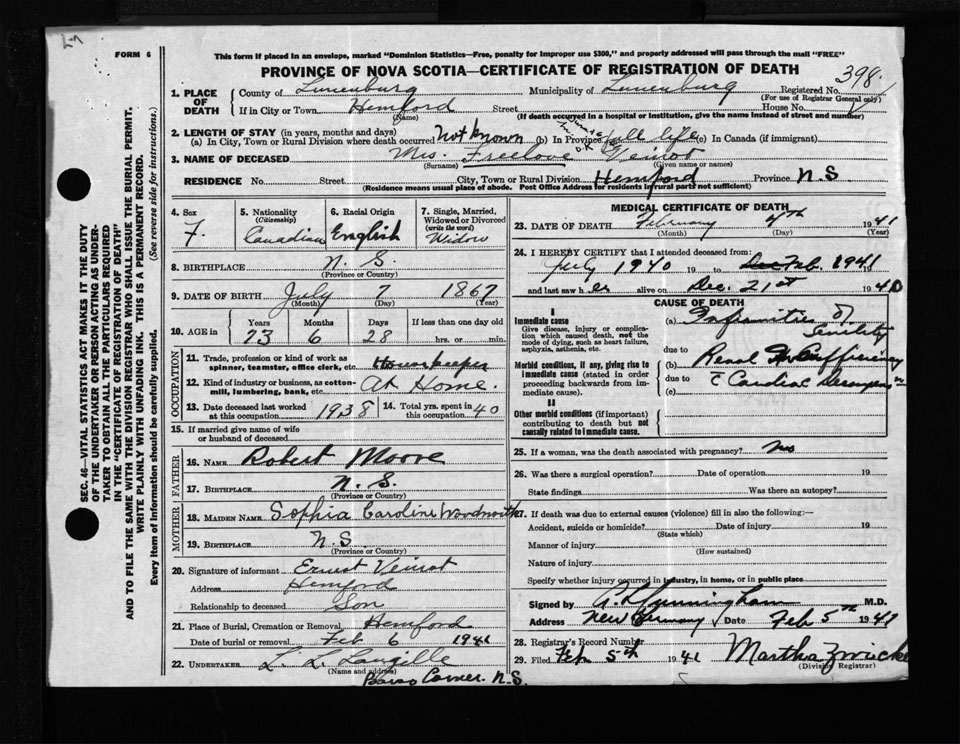 FORM 6
This form if placed in an envelope, marked "Dominion Statistics—Free, penalty for improper use $300," and properly addressed will pass through the mail "FREE"
PROVINCE OF NOVA SCOTIA—CERTIFICATE OF REGISTRATION OF DEATH
398
1. PLACE OF DEATH
County of Lunenburg Municipality of Lunenburg Registered No.
(For use of Registrar General only)
If in City or Town Hemford Street House No.
(Name) (If death occurred in a hospital or institution, give the name instead of street and number)
2. LENGTH OF STAY (in years, months and days)
(a) In City, Town or Rural Division where death occurred Not known (b) In Province all life (c) In Canada (if immigrant)
3. NAME OF DECEASED Mrs. Freelove Veinot
(Surname) (Given name or names)
RESIDENCE No. Street City, Town or Rural Division Hemford Province N.S
(Residence means usual place of abode. Post Office Address for residents in rural parts not sufficient)
4. Sex
F.
5. Nationality
(Citizenship)
Canadian
6. Racial Origin
English
7. Single, Married, Widowed or Divorced
(write the word)
Widow
8. BIRTHPLACE N. S.
(Province or Country)
9. DATE OF BIRTH July 7 1867
(Month) (Day) (Year)
10. AGE in
Years Months Days If less than one day old
73 6 28 hrs. or min.
OCCUPATION
11. Trade, profession or kind of work as spinner, teamster, office clerk, etc. Housekeeper
12. Kind of industry or business, as cotton-mill, lumbering, bank, etc. At Home.
13. Date deceased last worked at this occupation 1938
14. Total yrs. spent in this occupation 40
15. If married give name of wife or husband of deceased
FATHER
16. NAME Robert Moore
17. BIRTHPLACE N. S.
(Province or Country)
MOTHER
18. MAIDEN NAME Sophia Caroline Woodworth
19. BIRTHPLACE N.S.
(Province or Country)
20. Signature of informant Ernest Veinot
Address Hemford
Relationship to deceased Son
21. Place of Burial, Cremation or Removal Hemford
Date of burial or removal Feb 6 1941
22. UNDERTAKER L. L. Langille
(Name and address)
Barss Corner. N.S.
MEDICAL CERTIFICATE OF DEATH
23. DATE OF DEATH February 4th 1941
(Month) (Day) (Year)
24. I HEREBY CERTIFY that I attended deceased from:
July 1940 19 to Feb. 1941 19
and last saw her alive on Dec. 21st 1940
CAUSE OF DEATH
I
Immediate cause
Give disease, injury or complication which caused death, not the mode of dying, such as heart failure, asphyxia, asthenia, etc.
(a) Infirmities of Senility
due to
Morbid conditions, if any, giving rise to immediate cause (stated in order proceeding backwards from immediate cause).
(b) Renal Insufficiency
due to
(c) Cardiac
II
Other morbid conditions (if important) contributing to death but not causally related to immediate cause.
25. If a woman, was the death associated with pregnancy? no
26. Was there a surgical operation? Date of operation 19
State findings Was there an autopsy?
27. If death was due to external causes (violence) fill in also the following:—
Accident, suicide or homicide? Date of injury 19
(State which)
Manner of injury
(How sustained)
Nature of injury
Specify whether injury occurred in industry, in home, or in public place
Signed by Cunningham M.D.
Address New Germany Date Feb 5th 1941
28. Registrar's Record Number
29. Filed Feb 5th 1941 Martha Zwicker
(Division Registrar)
SEC. 46—VITAL STATISTICS ACT MAKES IT THE DUTY
OF THE UNDERTAKER OR PERSON ACTING AS UNDER-
TAKER TO OBTAIN ALL THE PARTICULARS REQUIRED
IN THE "CERTIFICATE OF REGISTRATION OF DEATH"
AND TO FILE THE SAME WITH THE DIVISION REGISTRAR WHO SHALL ISSUE THE BURIAL PERMIT.
WRITE PLAINLY WITH UNFADING INK. THIS IS A PERMANENT RECORD.
Every item of Information should be carefully supplied. (See reverse side for instructions.)